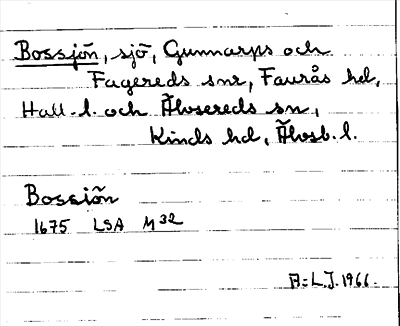 Bossjön, sjö, Gunnarps och
Fagereds snr, Faurås hd,
Hall. l. och Älvsereds sn,
Kinds hd, Älvsb. l.
Bossiön
1675 LSA M 32
A:L.J. 1966.